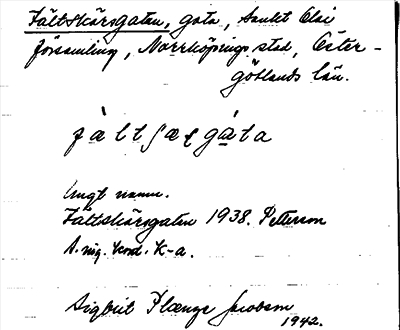 Fältskärsgatan, gata, Sankt Olai
församling, Norrköpings stad, Öster-
götlands län.
fàltʃæɽgáta
Ungt namn.
Fältskärsgatan 1938. Petterson
A. mg. kord. K-a.
Sigbrit Plænge Jacobson
1942.